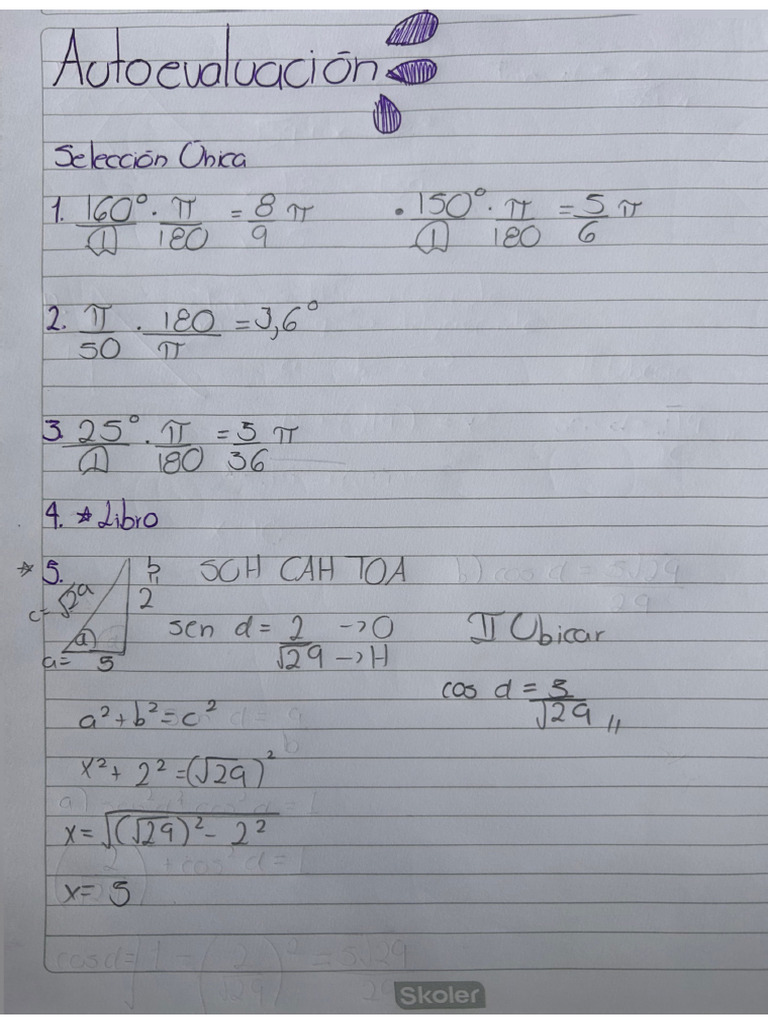 Autoevaluación
Selección Única
1. 160°/1 · π/180 = 8/9 π • 150°/1 · π/180 = 5/6 π
2. π/50 · 180/π = 3,6°
3. 25°/1 · π/180 = 5/36 π
4. ☆ Libro
☆ 5. b SOH CAH TOA
c= √29 2
sen d = 2/√29 →O →H II Ubicar
a= 5 d
cos d = 5/√29 ,,
a² + b² = c²
x² + 2² = (√29)²
x = √(√29)² - 2²
x = 5
Skoler